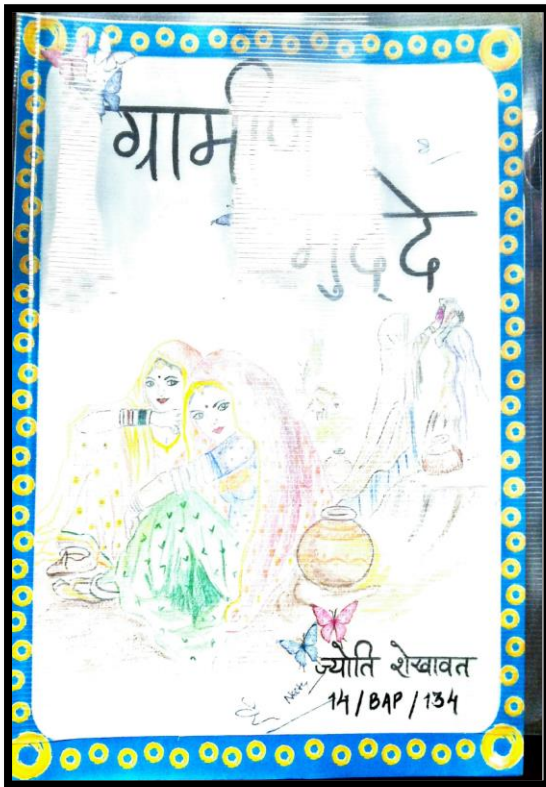 ग्रामीण
मुद्दे
ज्योति शेखावत
14/BAP/134